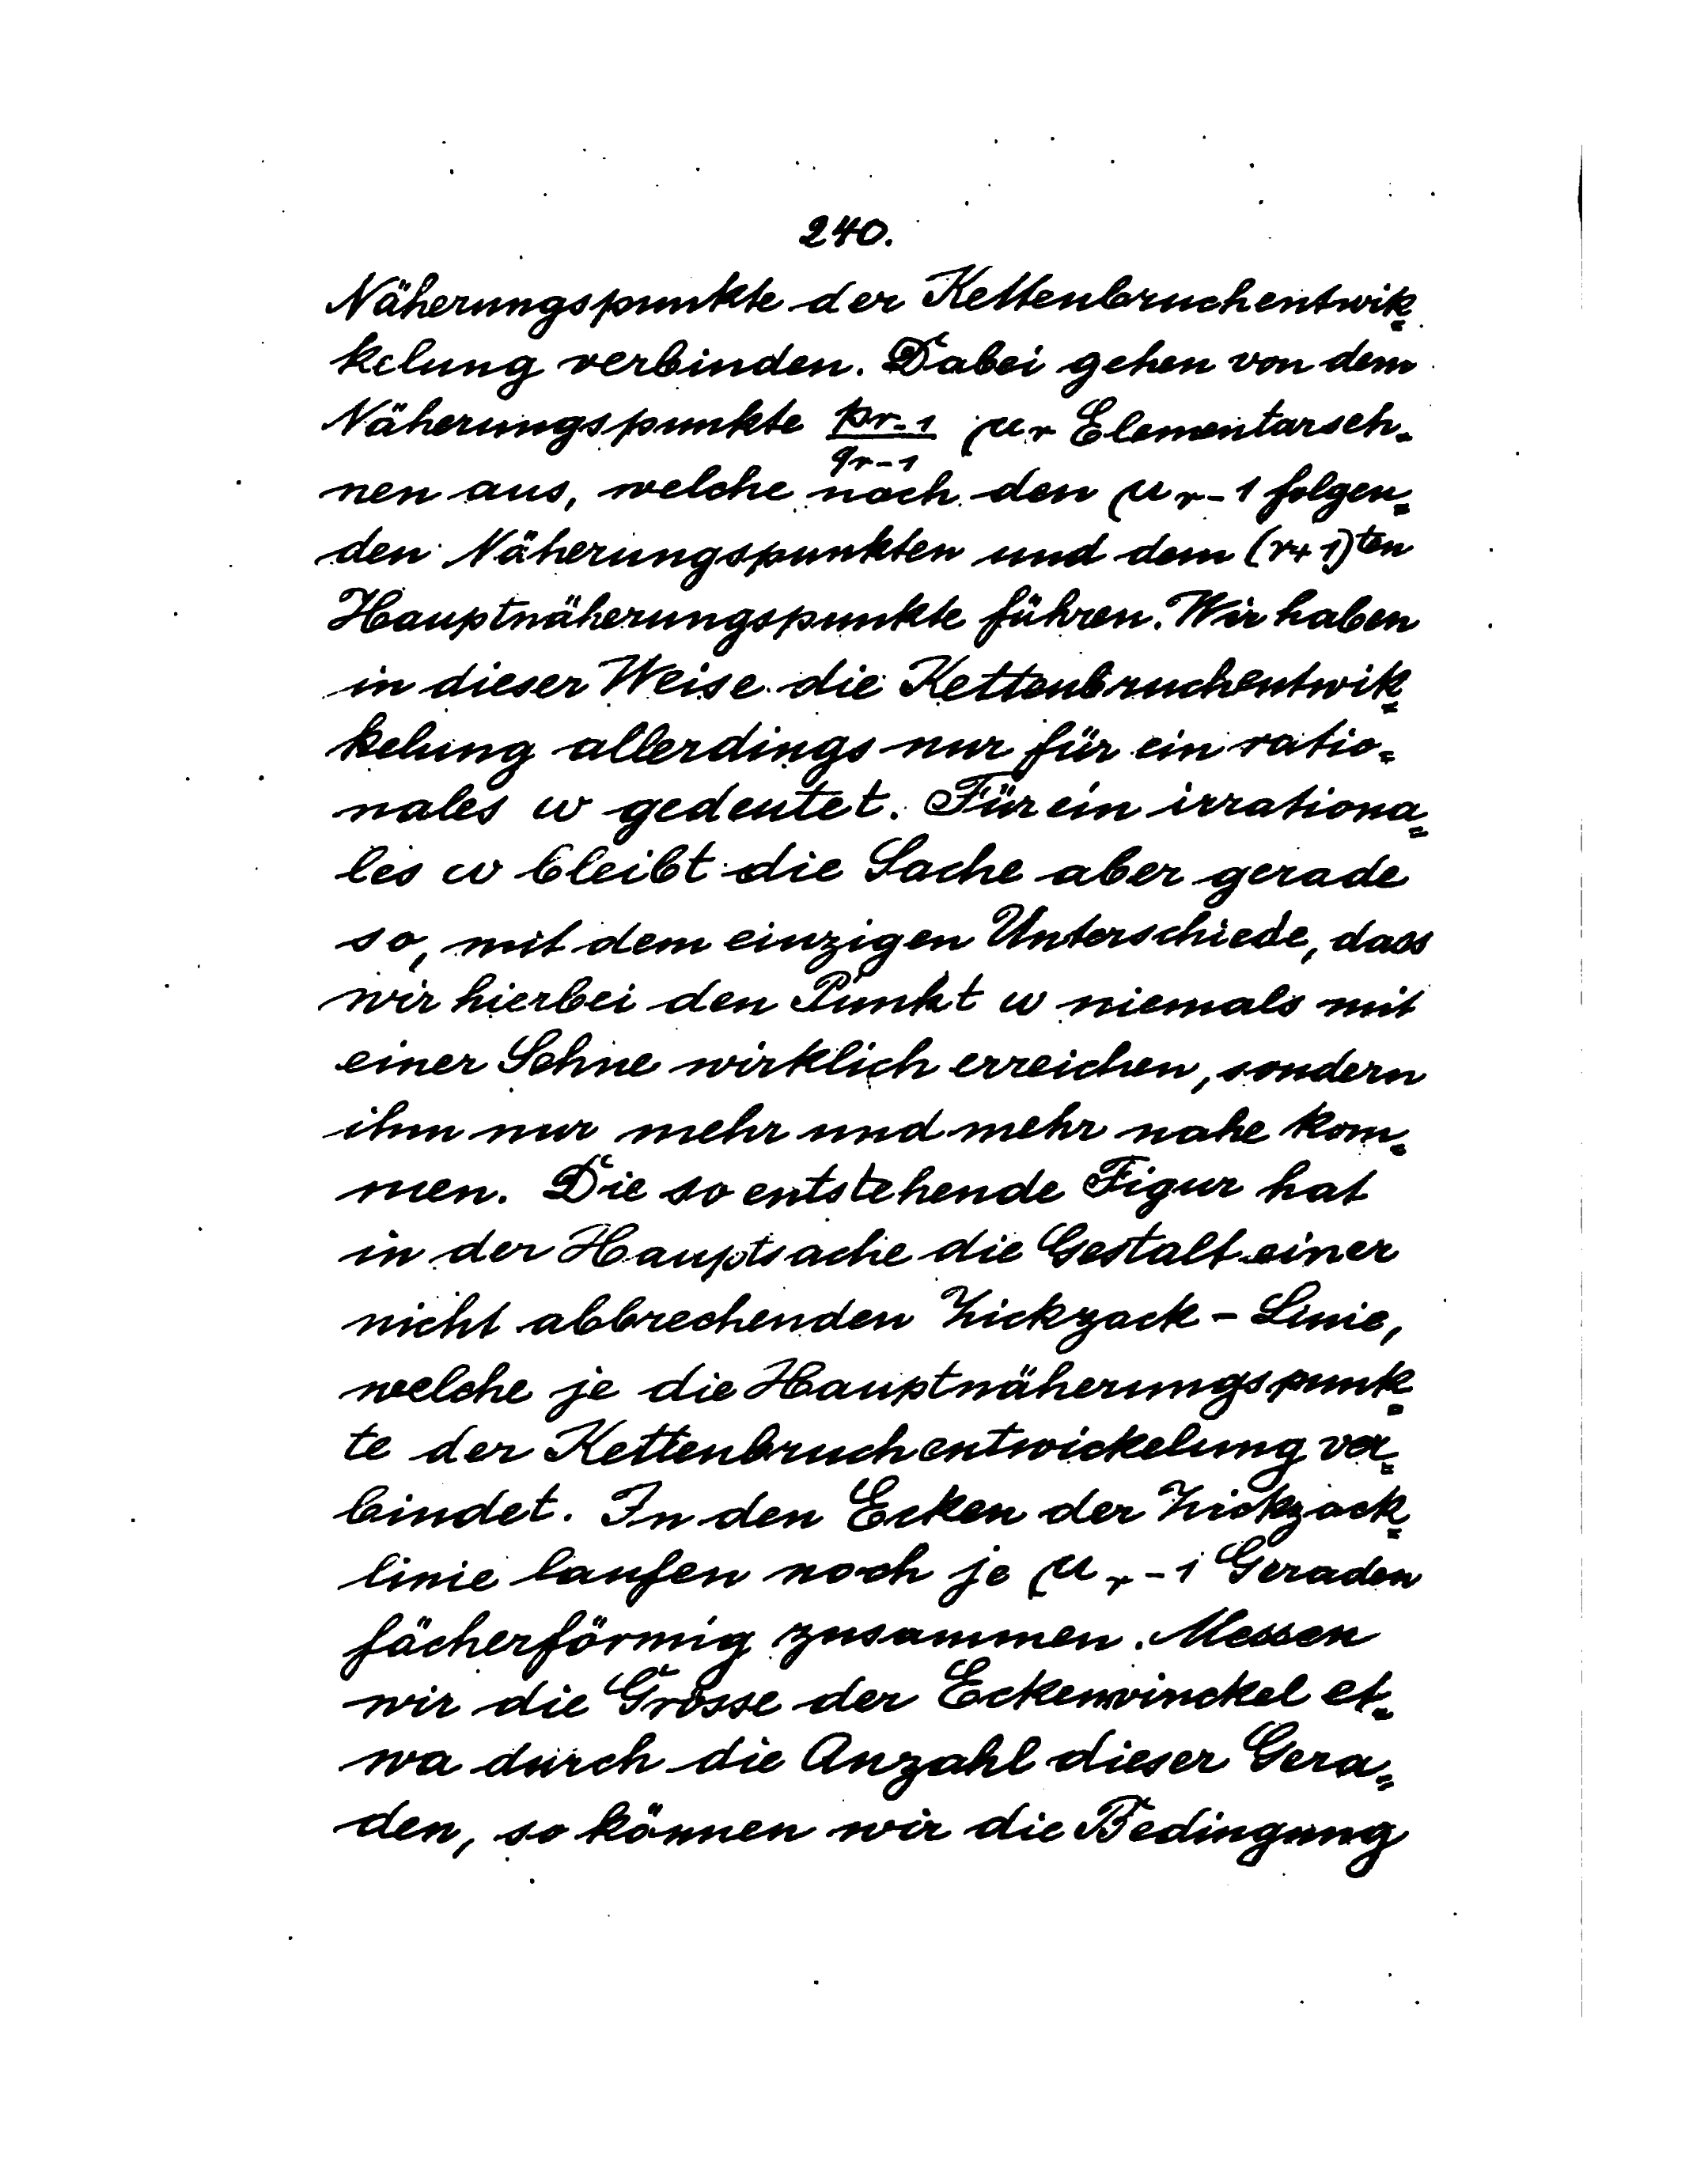 240.
Näherungspunkte der Kettenbruchentwik=
kelung verbinden. Dabei gehen von dem
Näherungspunkte \frac{p_{r-1}}{q_{r-1}} μ_r Elementarseh=
nen aus, welche nach den μ_r-1 folgen=
den Näherungspunkten und dem (r+1)ten
Hauptnäherungspunkte führen. Wir haben
in dieser Weise die Kettenbruchentwik=
kelung allerdings nur für ein ratio=
nales ω gedeutet. Für ein irrationa=
les ω bleibt die Sache aber gerade
so, mit dem einzigen Unterschiede, dass
wir hierbei den Punkt ω niemals mit
einer Sehne wirklich erreichen, sondern
ihm nur mehr und mehr nahe kom=
men. Die so entstehende Figur hat
in der Hauptsache die Gestalt einer
nicht abbrechenden Zickzack-Linie,
welche je die Hauptnäherungspunk=
te der Kettenbruchentwickelung ver=
bindet. In den Ecken der Zickzack=
linie laufen noch je μ_r-1 Geraden
fächerförmig zusammen. Messen
wir die Grösse der Eckenwinckel et=
wa durch die Anzahl dieser Gera=
den, so können wir die Bedingung